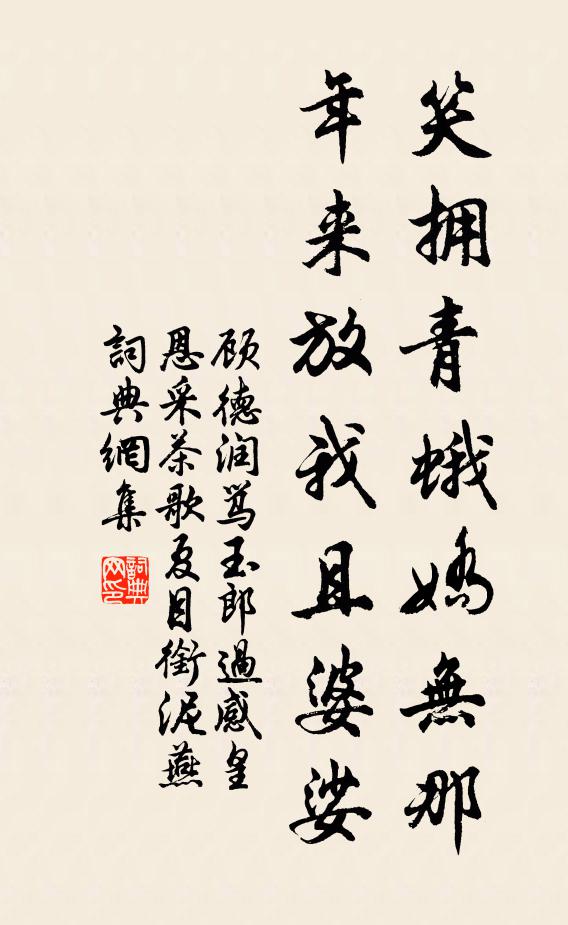 笑拥青蛾娇無那
年来放我且婆娑
顾德润骂玉郎過感皇
恩采茶歌夏日銜泥燕
詞典網集
詞典
网印